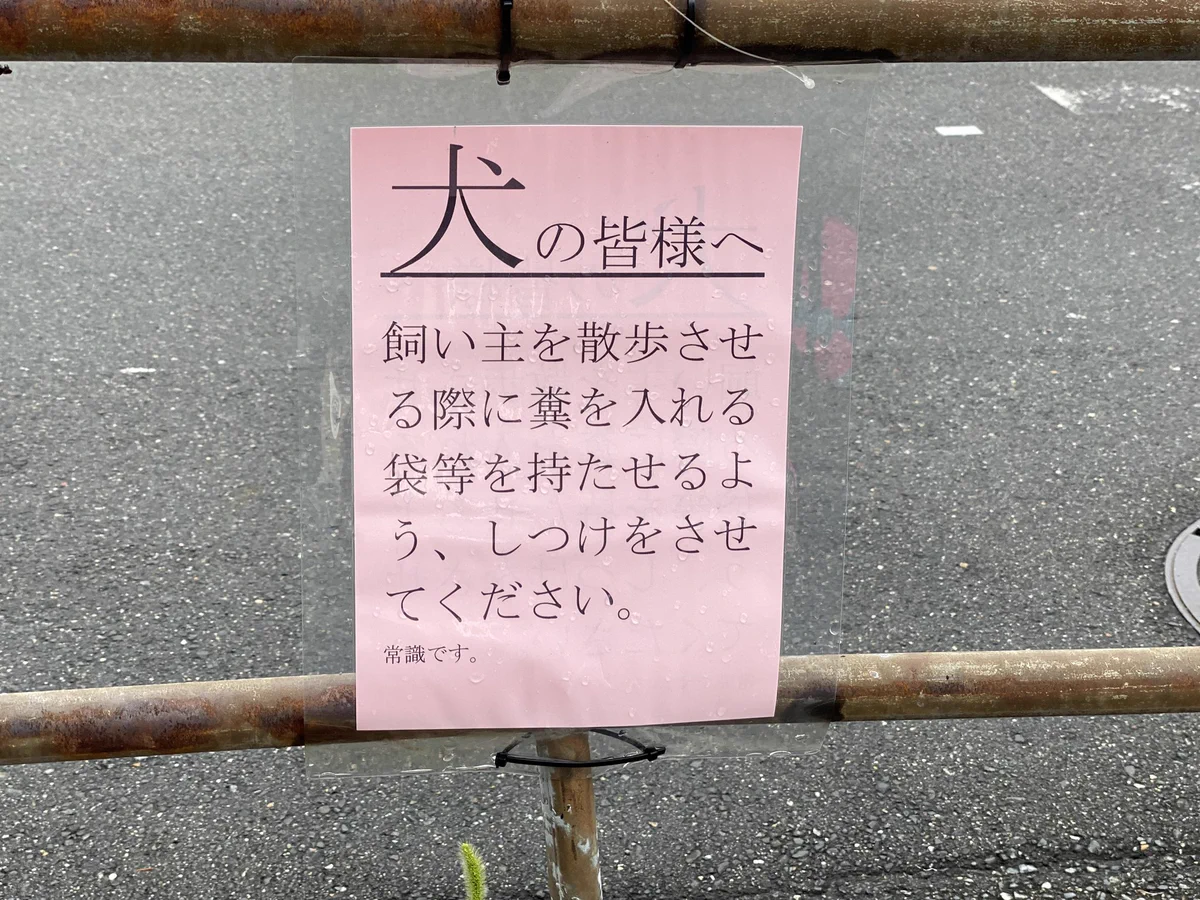 犬の皆様へ
飼い主を散歩させ
る際に糞を入れる
袋等を持たせるよ
う、しつけをさせ
てください。
常識です。